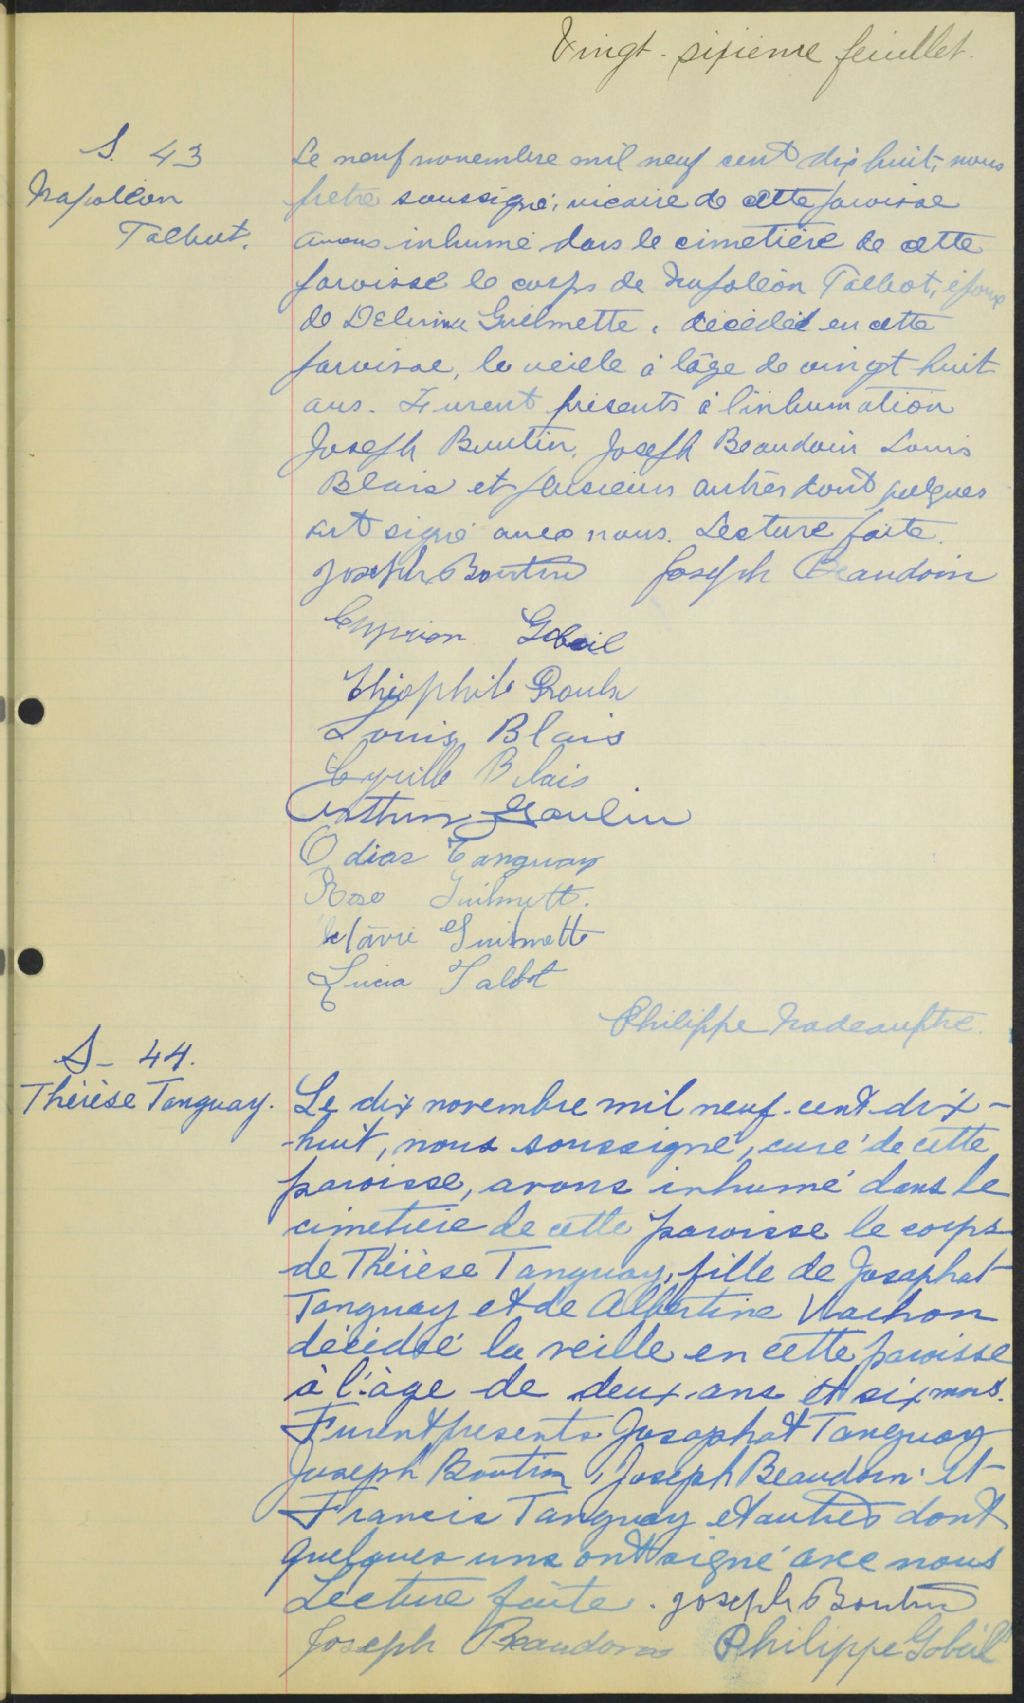 Vingt-sixième feuillet.
S. 43
Napoléon
Talbot.
Le neuf novembre mil neuf cent dix huit, nous
prêtre soussigné, vicaire de cette paroisse
avons inhumé dans le cimetière de cette
paroisse le corps de Napoléon Talbot, époux
de Delvina Guilmette, décédé en cette
paroisse, la veille à l'âge de vingt huit
ans. Furent présents à l'inhumation
Joseph Boutin, Joseph Beaudoin Louis
Blais et plusieurs autres dont quelques
ont signé avec nous. Lecture faite.
Joseph Boutin Joseph Beaudoin
Cyprien Gobeil
Théophile Proulx
Louis Blais
Cyrille Blais
Arthur Goulin
Odias Tanguay
Rose Guilmett.
Guilmette
Lucia Talbot
Philippe Nadeau ptre.
S- 44.
Thérèse Tanguay.
Le dix novembre mil neuf-cent-dix-
-huit, nous soussigné, curé de cette
paroisse, avons inhumé dans le
cimetière de cette paroisse le corps
de Thérèse Tanguay, fille de Josaphat
Tanguay et de Albertine Vachon
décédée la veille en cette paroisse
à l'âge de deux ans et six mois.
Furent présents Josaphat Tanguay
Joseph Boutin, Joseph Beaudoin et
Francis Tanguay et autres dont
quelques uns ont signé avec nous
Lecture faite. Joseph Boutin
Joseph Beaudoin Philippe Gobeil